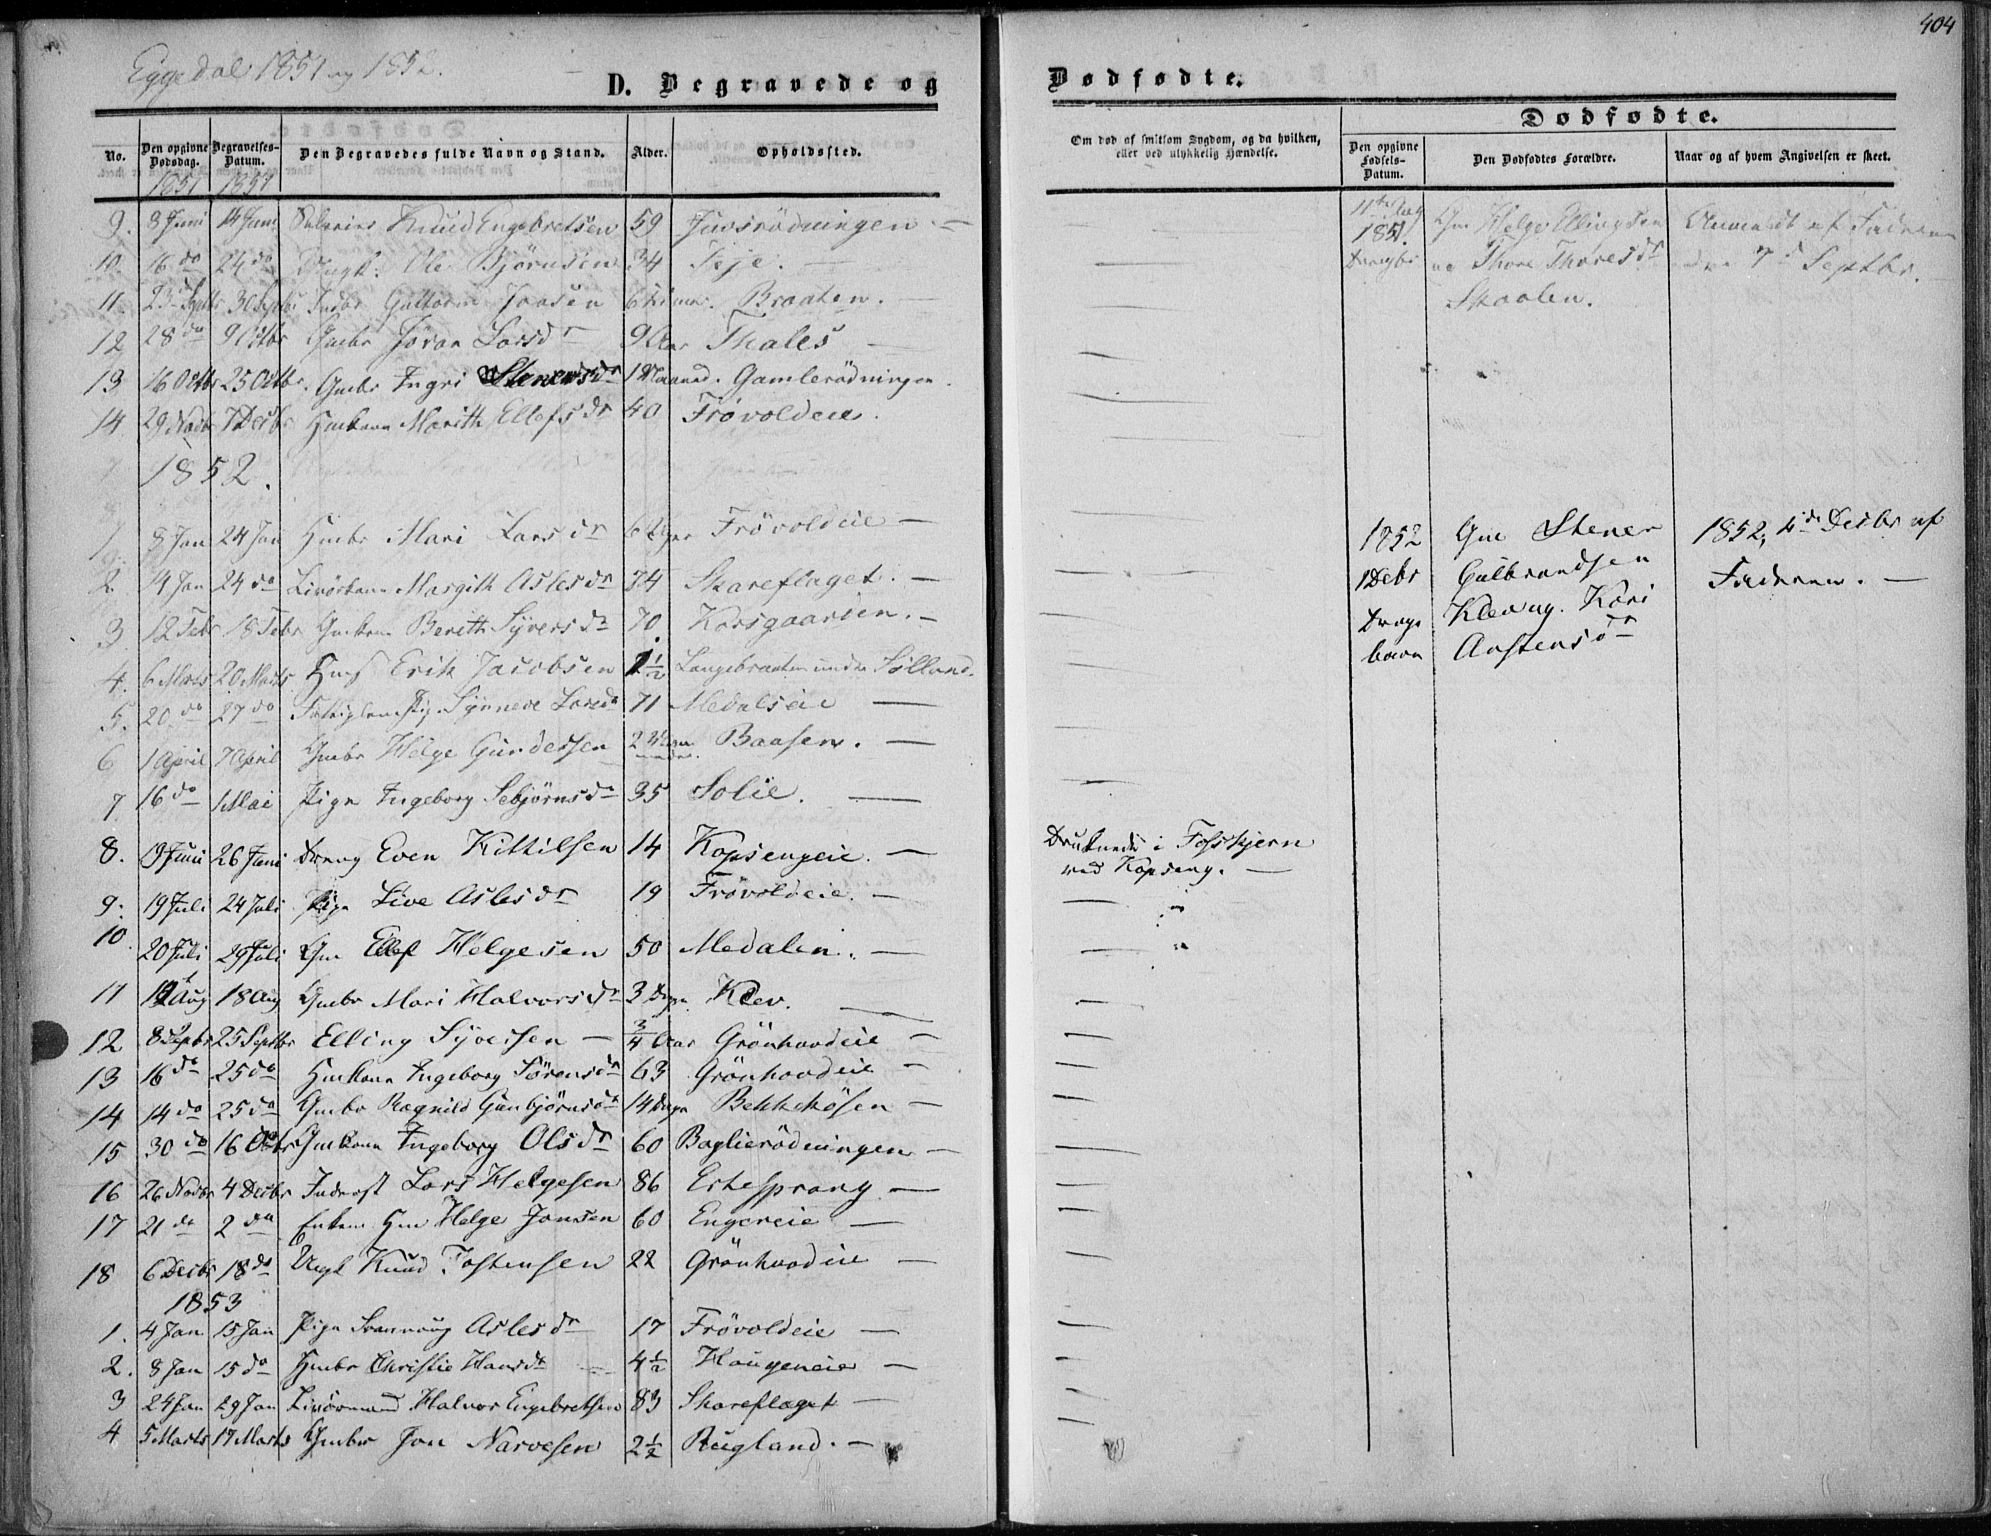 404
Eggedal 1851 og 1852.
D. Begravede og Dødfødte.
No. Den opgivne Dødsdag. Begravelses-Datum. Den Begravedes fulde Navn og Stand. Alder. Opholdssted.
Om død af smitsom Sygdom, og da hvilken, eller ved ulykkelig Hændelse.
Dødfødte.
Den opgivne Fødsels-Datum. Den Dødfødtes Forældre. Naar og af hvem Angivelsen er skeet.
1851 1851
9. 8 Juni 14 Juni Knud Engebretsen 59 Juvsrödningen. —
10 16 do 24 do Ungk. Ole Bjørnsen 34 —
11. 30 Septbr Guttorm 6 Braaten. —
12 28 do 9 Octbr Gmbr Jöran Larsdr 9 Aar Thales —
13 16 Octbr 25 Octbr. Gmbr Ingri Stenersdr 1 Maaned. Gamlerödningen.
14 29 Novbr 7 Decbr Hmkone Marith Ellefsdr 40 Frövoldeie.
1852.
1. 8 Jan 24 Jan Hmbr Mari Larsdr 6 Uger Frövoldeie —
2 14 Jan 24 do Livörkone Margith Aslesdr 74 Skareflaget. —
3 12 Febr 18 Febr Gmkone Berith Syversdr 70. Korsgaarden. —
4. 6 Marts 20 Marts Erik Jacobsen 1 1/2 Langebraaten under Solland.
5. 20 do 27 do Synneve Larsdr 71 Medalseie —
6 1 April 7 April Gmbr Helge Gundersen 2 Baasen. —
7 16 do 1 Mai Pige Ingeborg Sebjørnsdr 35 Solie. —
8. 19 Juni 26 Juni Dreng Even Kittilsen 14 Kopsengeie. — Druknede i Fosskjern
ved Kopseng. —
9. 19 Juli 24 Juli Pige Live Aslesdr 19 Frövoldeie. —
10. 20 Juli 29 Juli Gm Ellef Helgesen 50 Medalen. —
11 Aug 18 Aug Gmbr Mari Halvorsdr 3 Dage Klev. —
12 8 Septbr 25 Septbr Elling Syversen — 3/4 Aar Grönhovdeie —
13 16 do 25 do Hmkone Ingeborg Sörensdr 63 Grönhovdeie —
14 14 do 25 do Gmbr Ragnild Gunbjørnsdr 14 Dage Bekkekåsen —
15 30 do 16 Octbr Gmkone Ingeborg Olsdr 60 Baglierödningen —
16 26 Novbr 4 Decbr Inderst Lars Helgesen 86 Ertesprang —
17 21 do 2 do Enkem Hm Helge Jonsen 60 Engereie —
18 6 Decbr 18 do Ungk Knud Tostensen 22 Grönhovdeie —
1853
1. 4 Jan 15 Jan Pige Svannoug Aslesdr 17 Frövoldeie —
2. 8 Jan 15 do Hmbr Christie Hansdr 4 1/2 Haugeneie —
3 24 Jan 29 Jan Livörmand Halvor Engebretsen 83 Skareflaget —
4 5 Marts 17 Marts Gmbr Jon Narvesen 2 1/2 Rugland. —
1851. Gm Helge Ellingsen Anmeldt af Faderen
Drengbr og Thore Thoresdr den 7de Septbr.
Skaalen.
1852 Gm Stener 1852, 4de Decbr af
1 Decbr Gulbrandsen Faderen. —
Drenge Klev og Kari
barn Anstensdr